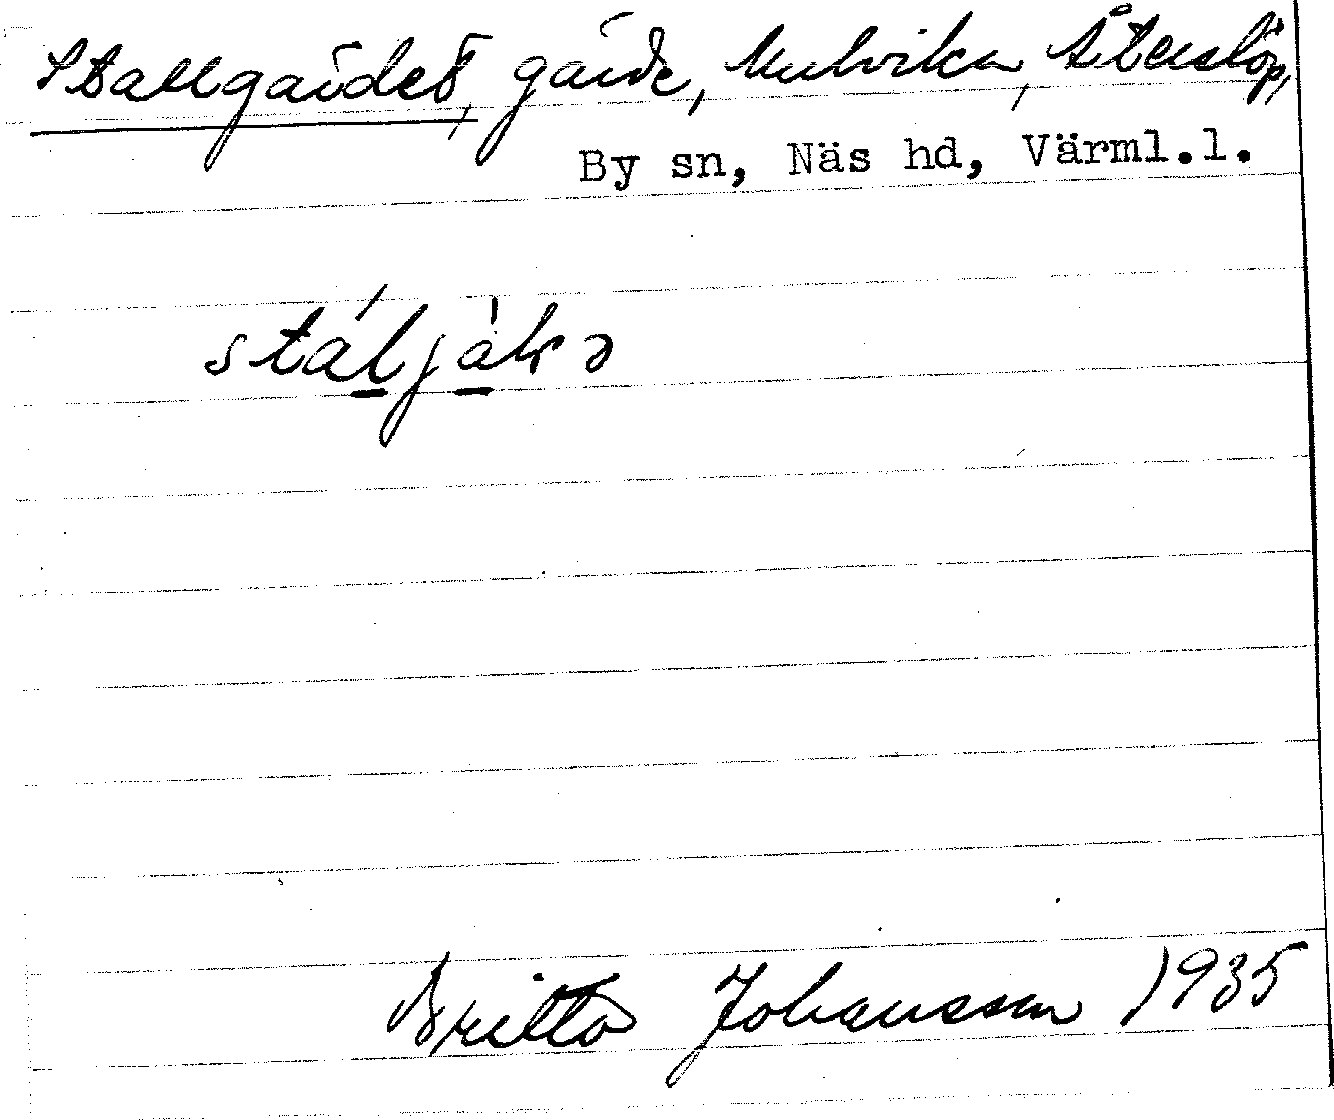 Stallgärdet, gärde, Mulvika, Återslöp,
By sn, Näs hd, Värml.l.
stáljàkə
Britta Johansson 1935